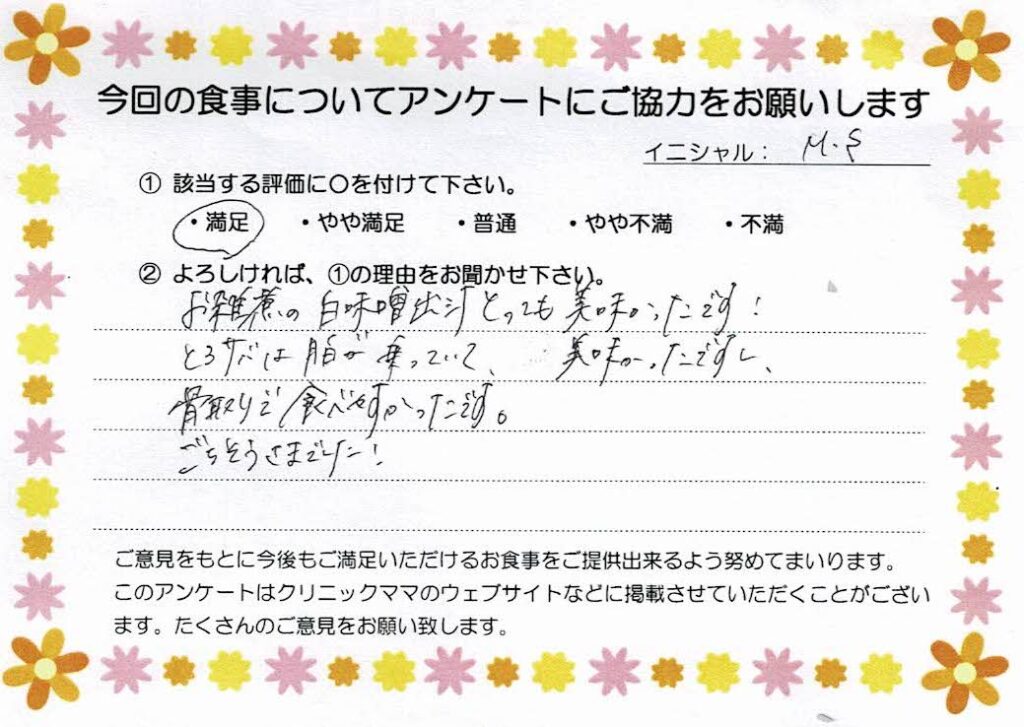 今回の食事についてアンケートにご協力をお願いします
イニシャル： M.S
① 該当する評価に〇を付けて下さい。
・満足 ・やや満足 ・普通 ・やや不満 ・不満
② よろしければ、①の理由をお聞かせ下さい。
お雑煮の白味噌出汁とっても美味かったです！
とろサバは脂が乗っていて、美味かったですし、
骨取りで食べやすかったです。
ごちそうさまでした！
ご意見をもとに今後もご満足いただけるお食事をご提供出来るよう努めてまいります。
このアンケートはクリニックママのウェブサイトなどに掲載させていただくことがござい
ます。たくさんのご意見をお願い致します。